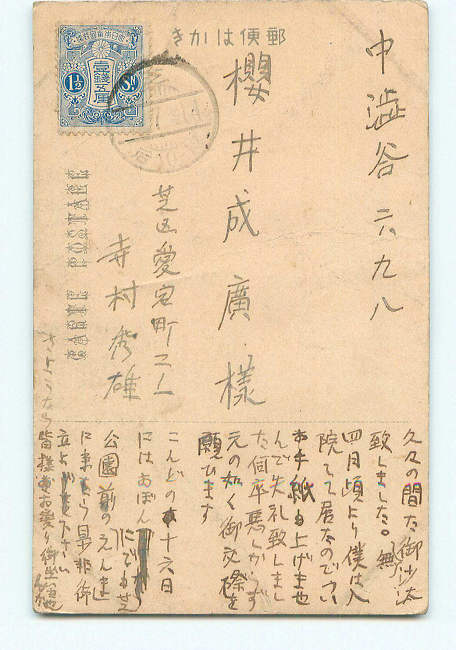 郵便はかき
大日本帝國郵便
壹錢五厘
1½ Sn
CARTE POSTALE
中澁谷六九八
櫻井成廣様
芝区愛宕町二ノ一
寺村秀雄
久々の間た御沙汰
致しました。無
四月頃より僕は入
院して居たのでつい
お手紙も上げませ
んで失礼致しまし
た何卒悪しからず
元の如く御交際を
願ひます
こんどの十六日
にはおぼん
公園前のえんま
に来ます是非御
立より下さい
さようなら皆様